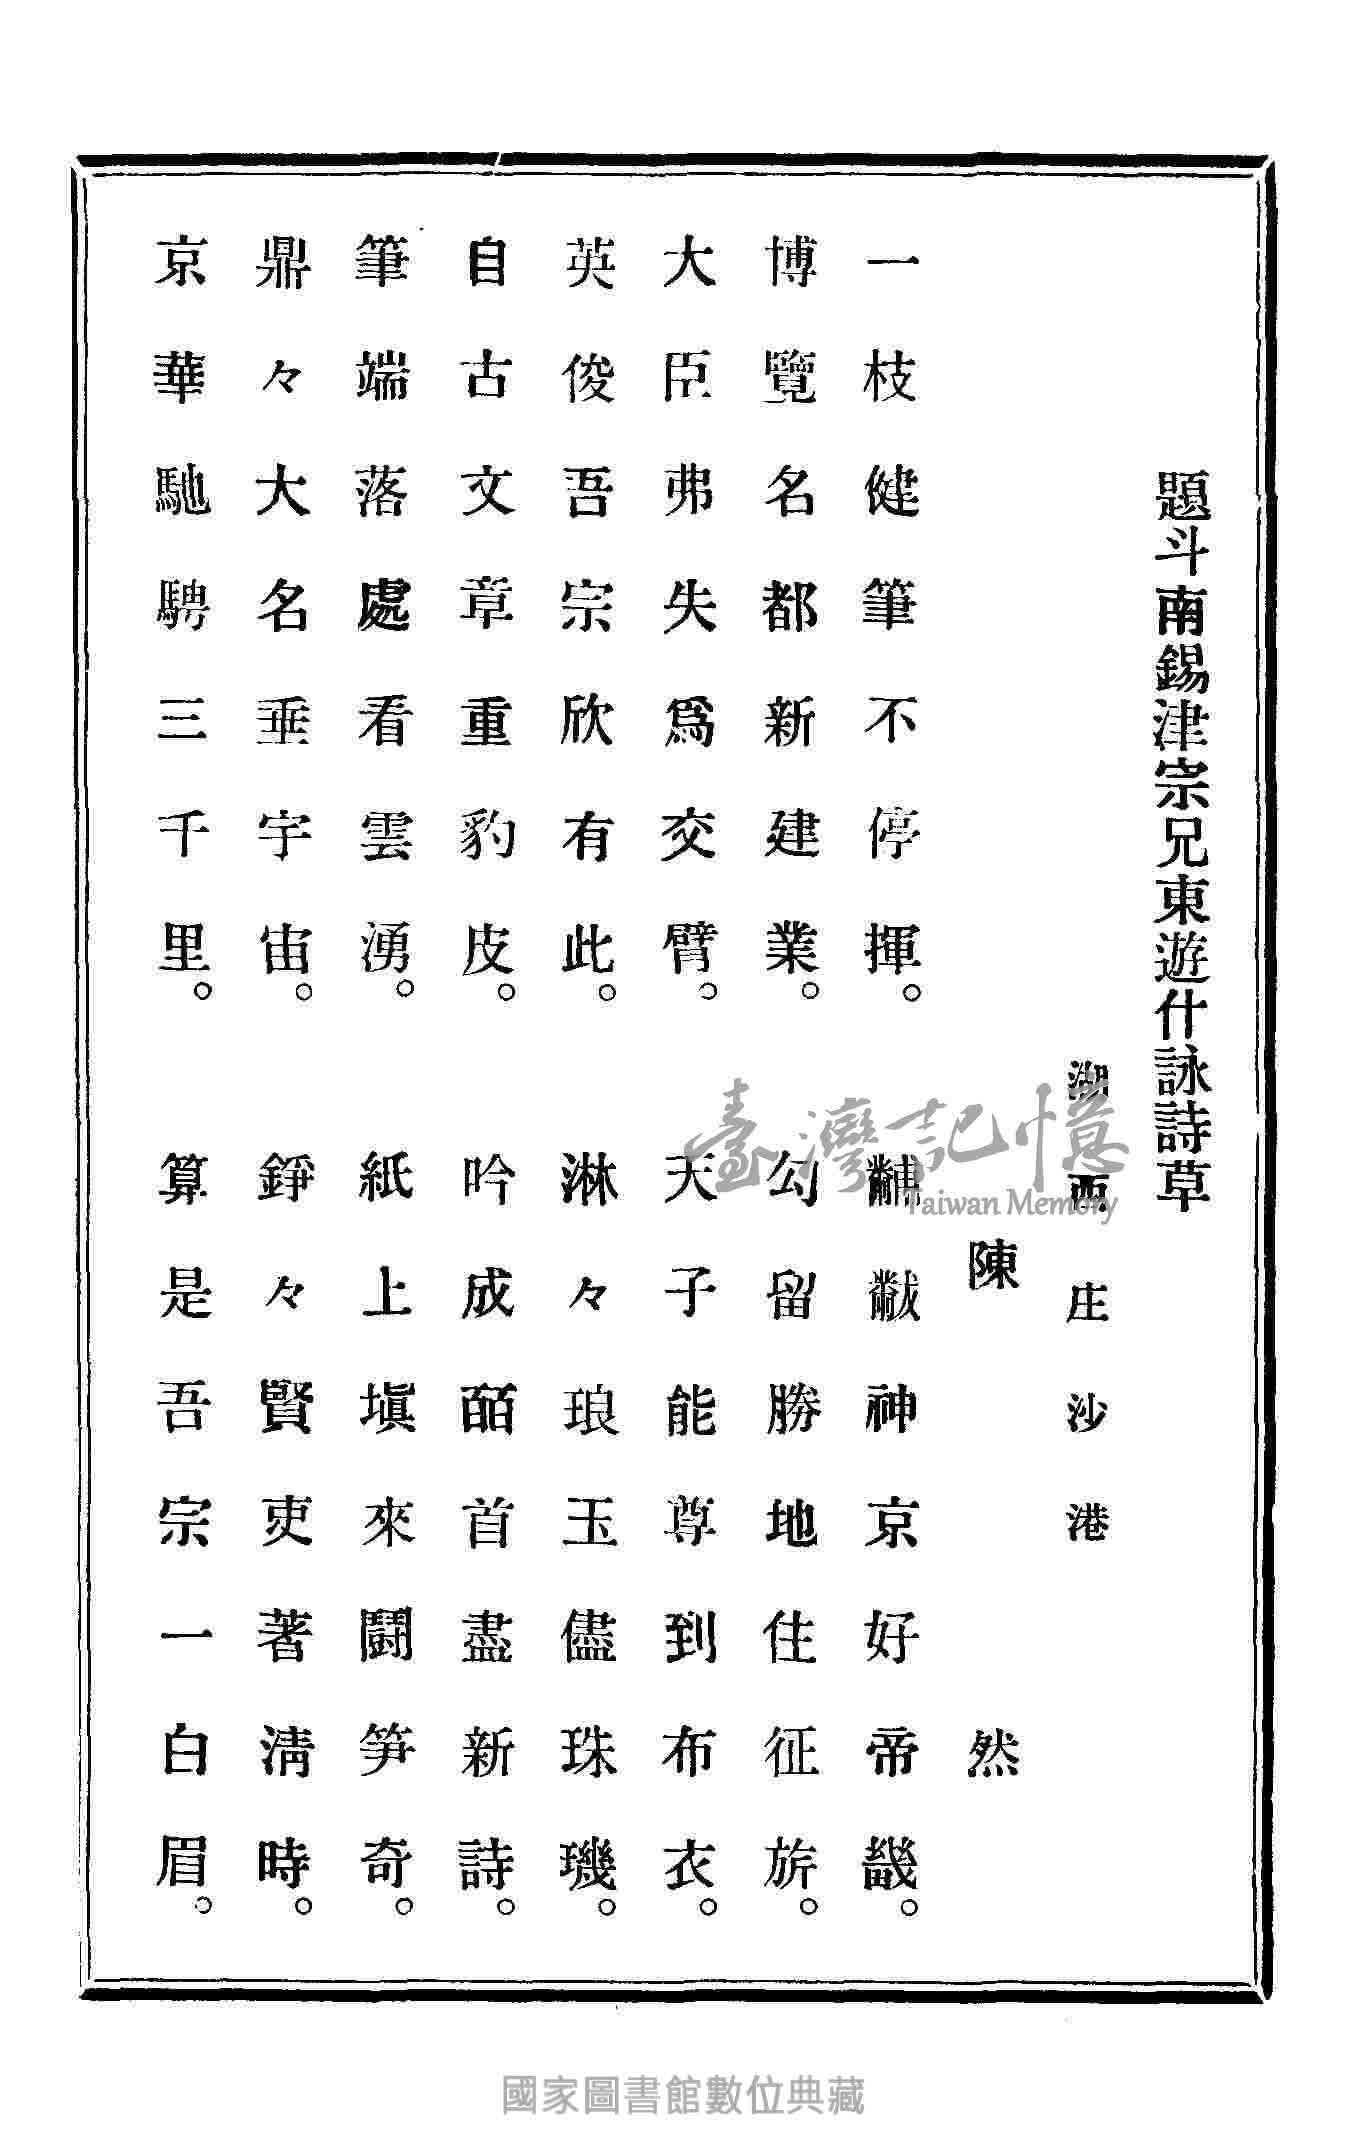 題斗南錫津宗兄東遊什詠詩草
湖西庄沙港
陳然
一枝健筆不停揮。黼黻神京好帝畿。
博覽名都新建業。勾留勝地住征旂。
大臣弗失爲交臂。天子能尊到布衣。
英俊吾宗欣有此。淋々琅玉儘珠璣。
自古文章重豹皮。吟成皕首盡新詩。
筆端落處看雲湧。紙上塡來鬪笋奇。
鼎々大名垂宇宙。錚々賢吏著淸時。
京華馳騁三千里。算是吾宗一白眉。
臺灣記憶
Taiwan Memory
國家圖書館數位典藏